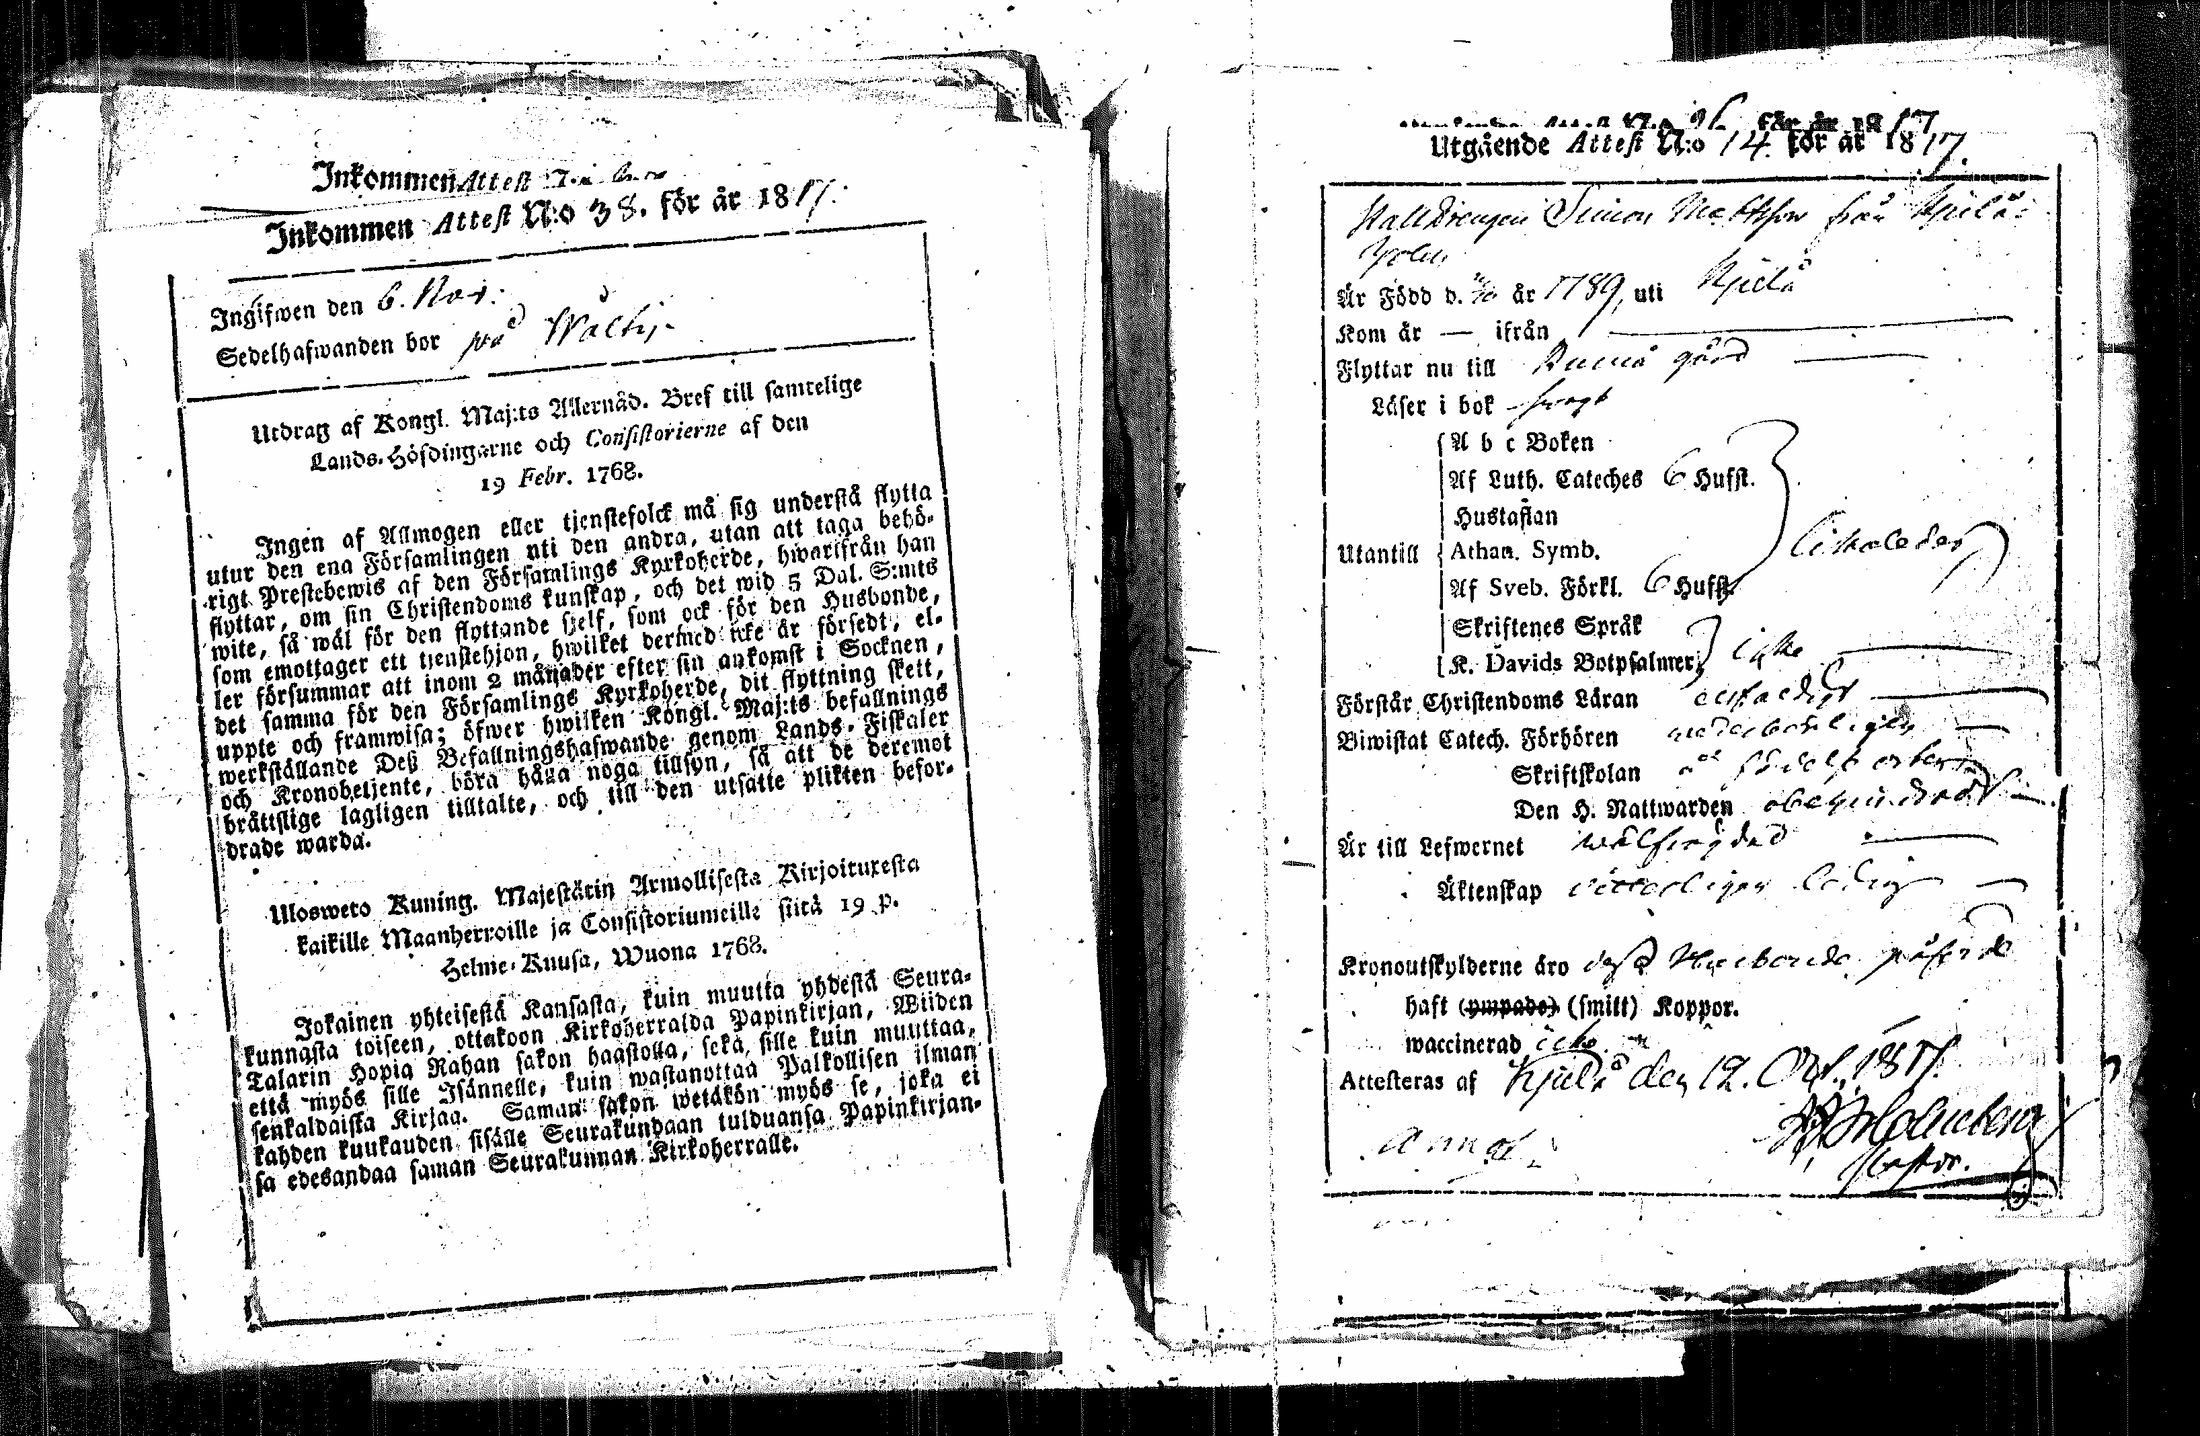 Inkommen Attest
Inkommen Attest N:o 38. för år 1817.
Ingifwen den 6. Nov:
Sedelhafwanden bor på Wälby
Utdrag af Kongl. Maj:ts Allernåd. Bref till samtelige
Lands-Höfdingarne och Consistorierne af den
19 Febr. 1768.
Ingen af Allmogen eller tjenstefolck må sig understå flytta
utur den ena Församlingen uti den andra, utan att taga behö-
rigt Prestebewis af den Församlings Kyrkoherde, hwarifrån han
flyttar, om sin Christendoms kunskap, och det wid 5 Dal. S:mts
wite, så wäl för den flyttande sjelf, som ock för den Husbonde,
som emottager ett tjenstehjon, hwilket dermed icke är försedt, el-
ler försummar att inom 2 månader efter sin ankomst i Socknen,
det samma för den Församlings Kyrkoherde, dit flyttning skett,
uppte och framwisa; öfwer hwilken Kongl. Maj:ts befallnings
werkställande Deß Befallningshafwande genom Lands-Fiskaler
och Kronobetjente, böra hålla noga tillsyn, så att de deremot
bråttslige lagligen tilltalte, och till den utsatte plikten befor-
drade warda.
Ulosweto Kuning. Majestätin Armollisesta Kirjoituxesta
kaikille Maanherroille ja Consistoriumeille siitä 19 p.
Helme-Kuusa, Wuona 1768.
Jokainen yhteisestä Kansasta, kuin muutta yhdestä Seura-
kunnasta toiseen, ottakoon Kirkoherralda Papinkirjan, Wiiden
Talarin Hopia Rahan sakon haastolla, sekä sille kuin muuttaa,
että myös sille Isännelle, kuin wastanottaa Palkollisen ilman
senkaldaista Kirjaa. Saman sakon wetäkön myös se, joka ei
kahden kuukauden sisälle Seurakundaan tulduansa Papinkirjan-
sa edesandaa saman Seurakunnan Kirkoherralle.
för år 1817
Utgående Attest N:o 14. för år 1817.
Stalldrengen Simon Mattsson från Kjulå-
holm
Är Född d. år 1789, uti Kjulå
Kom år — ifrån
Flyttar nu till gård
Läser i bok svagt
A b c Boken
Af Luth. Cateches 6 Hufst.
Hustaflan
Utantill Athan. Symb.
Af Sveb. Förkl. 6 Hufst.
Skriftenes Språk
K. Davids Botpsalmer icke
Förstår Christendoms Läran enfaldigt
Biwistat Catech. Förhören
Skriftskolan
Den H. Nattwarden obehindrad
Är till Lefwernet wälfrägdad
Äktenskap witterligen ledig
Kronoutskylderne äro dess Husbonde påförde
haft (ympade) (smitt) Koppor.
waccinerad icke
Attesteras af Kjulå den 12. Oct. 1817.
Holmberg
Pastor.